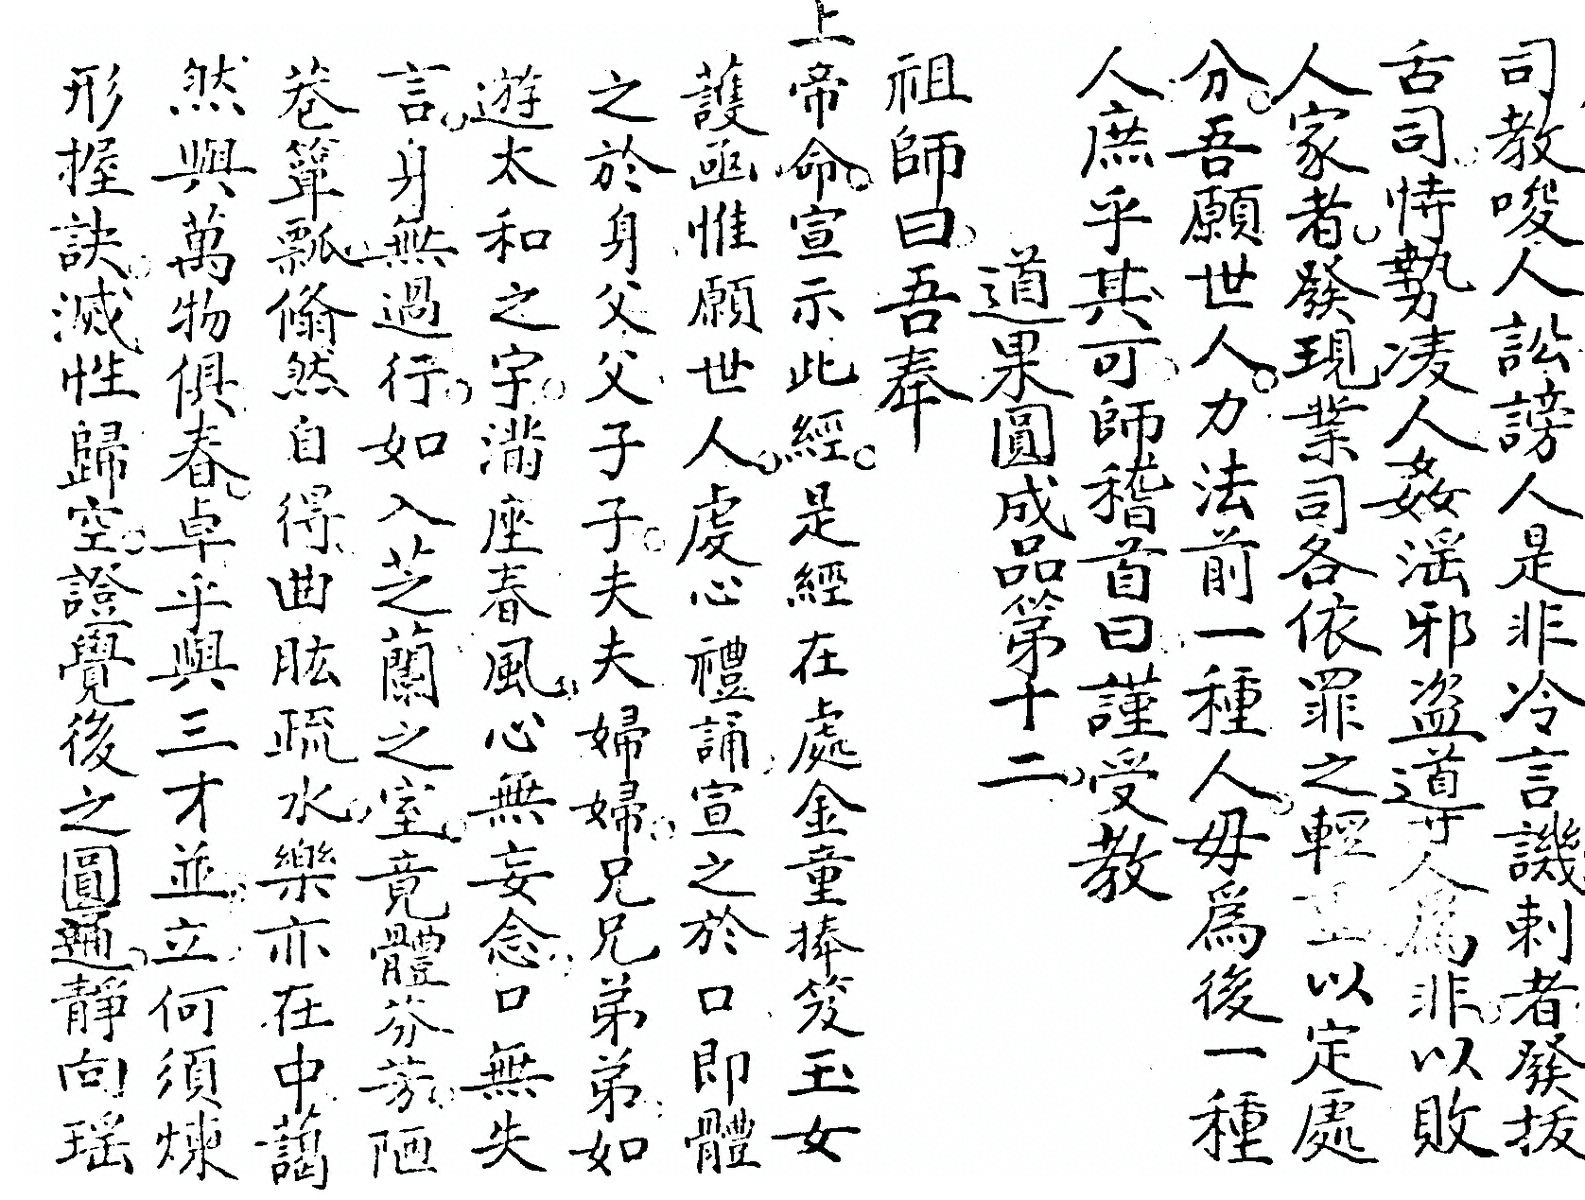 司教唆人訟謗人是非冷言譏刺者發拔
舌司恃勢凌人姦淫邪盗導人為非以敗
人家者發現業司各依罪之輕重以定處
分吾願世人力法前一種人毋爲後一種
人庶乎其可師稽首曰謹受教
道果圓成品第十二
祖師曰吾奉
上帝命宣示此經是經在處金童捧笈玉女
護函惟願世人虔心禮誦宣之於口即體
之於身父父子子夫夫婦婦兄兄弟弟如
遊太和之宇滿座春風心無妄念口無失
言身無過行如入芝蘭之室竟體芬芳陋
巷簞瓢翛然自得曲肱疏水樂亦在中藹
然與萬物俱春卓乎與三才並立何須煉
形握訣滅性歸空證覺後之圓通靜向瑶